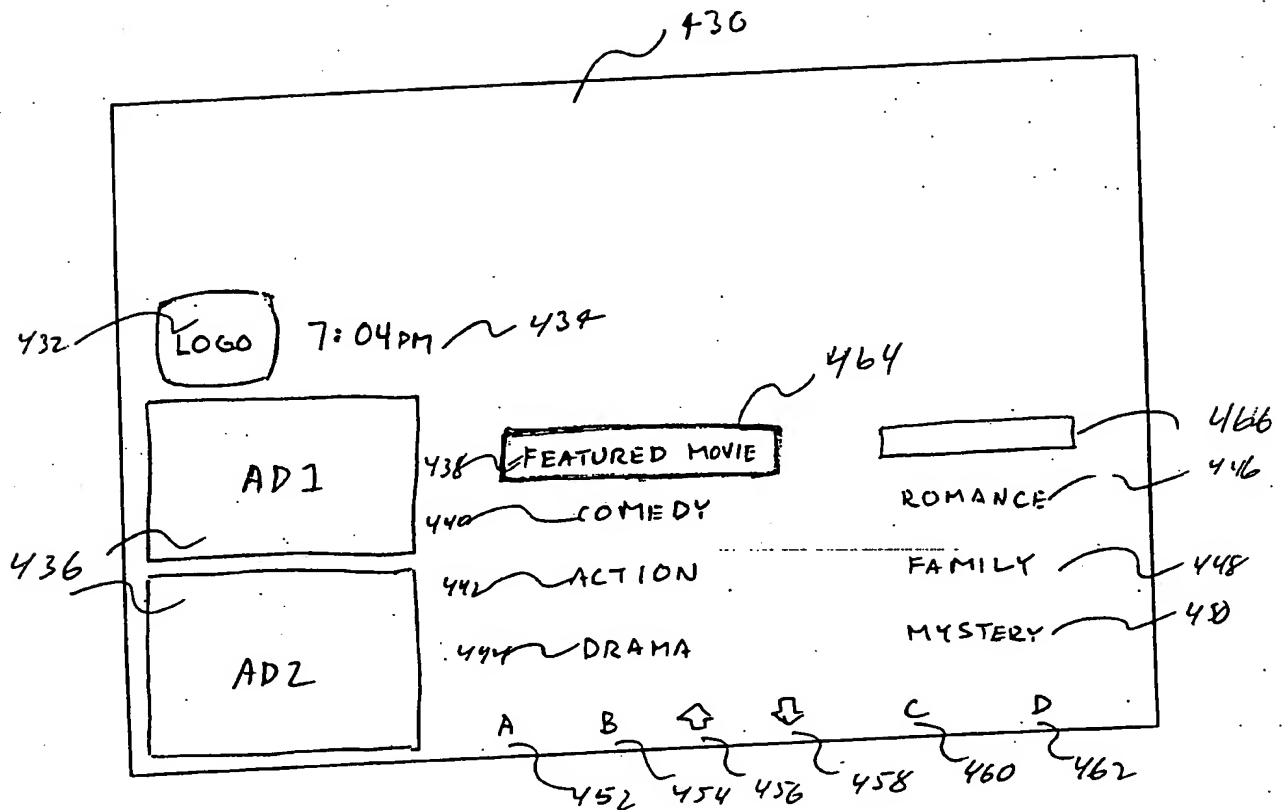 430
432 LOGO 7:04PM 434
464
466
438 FEATURED MOVIE
AD1
446
440 COMEDY ROMANCE
436
442 ACTION FAMILY 448
444 DRAMA MYSTERY 450
AD2
A B C D
452 454 456 458 460 462